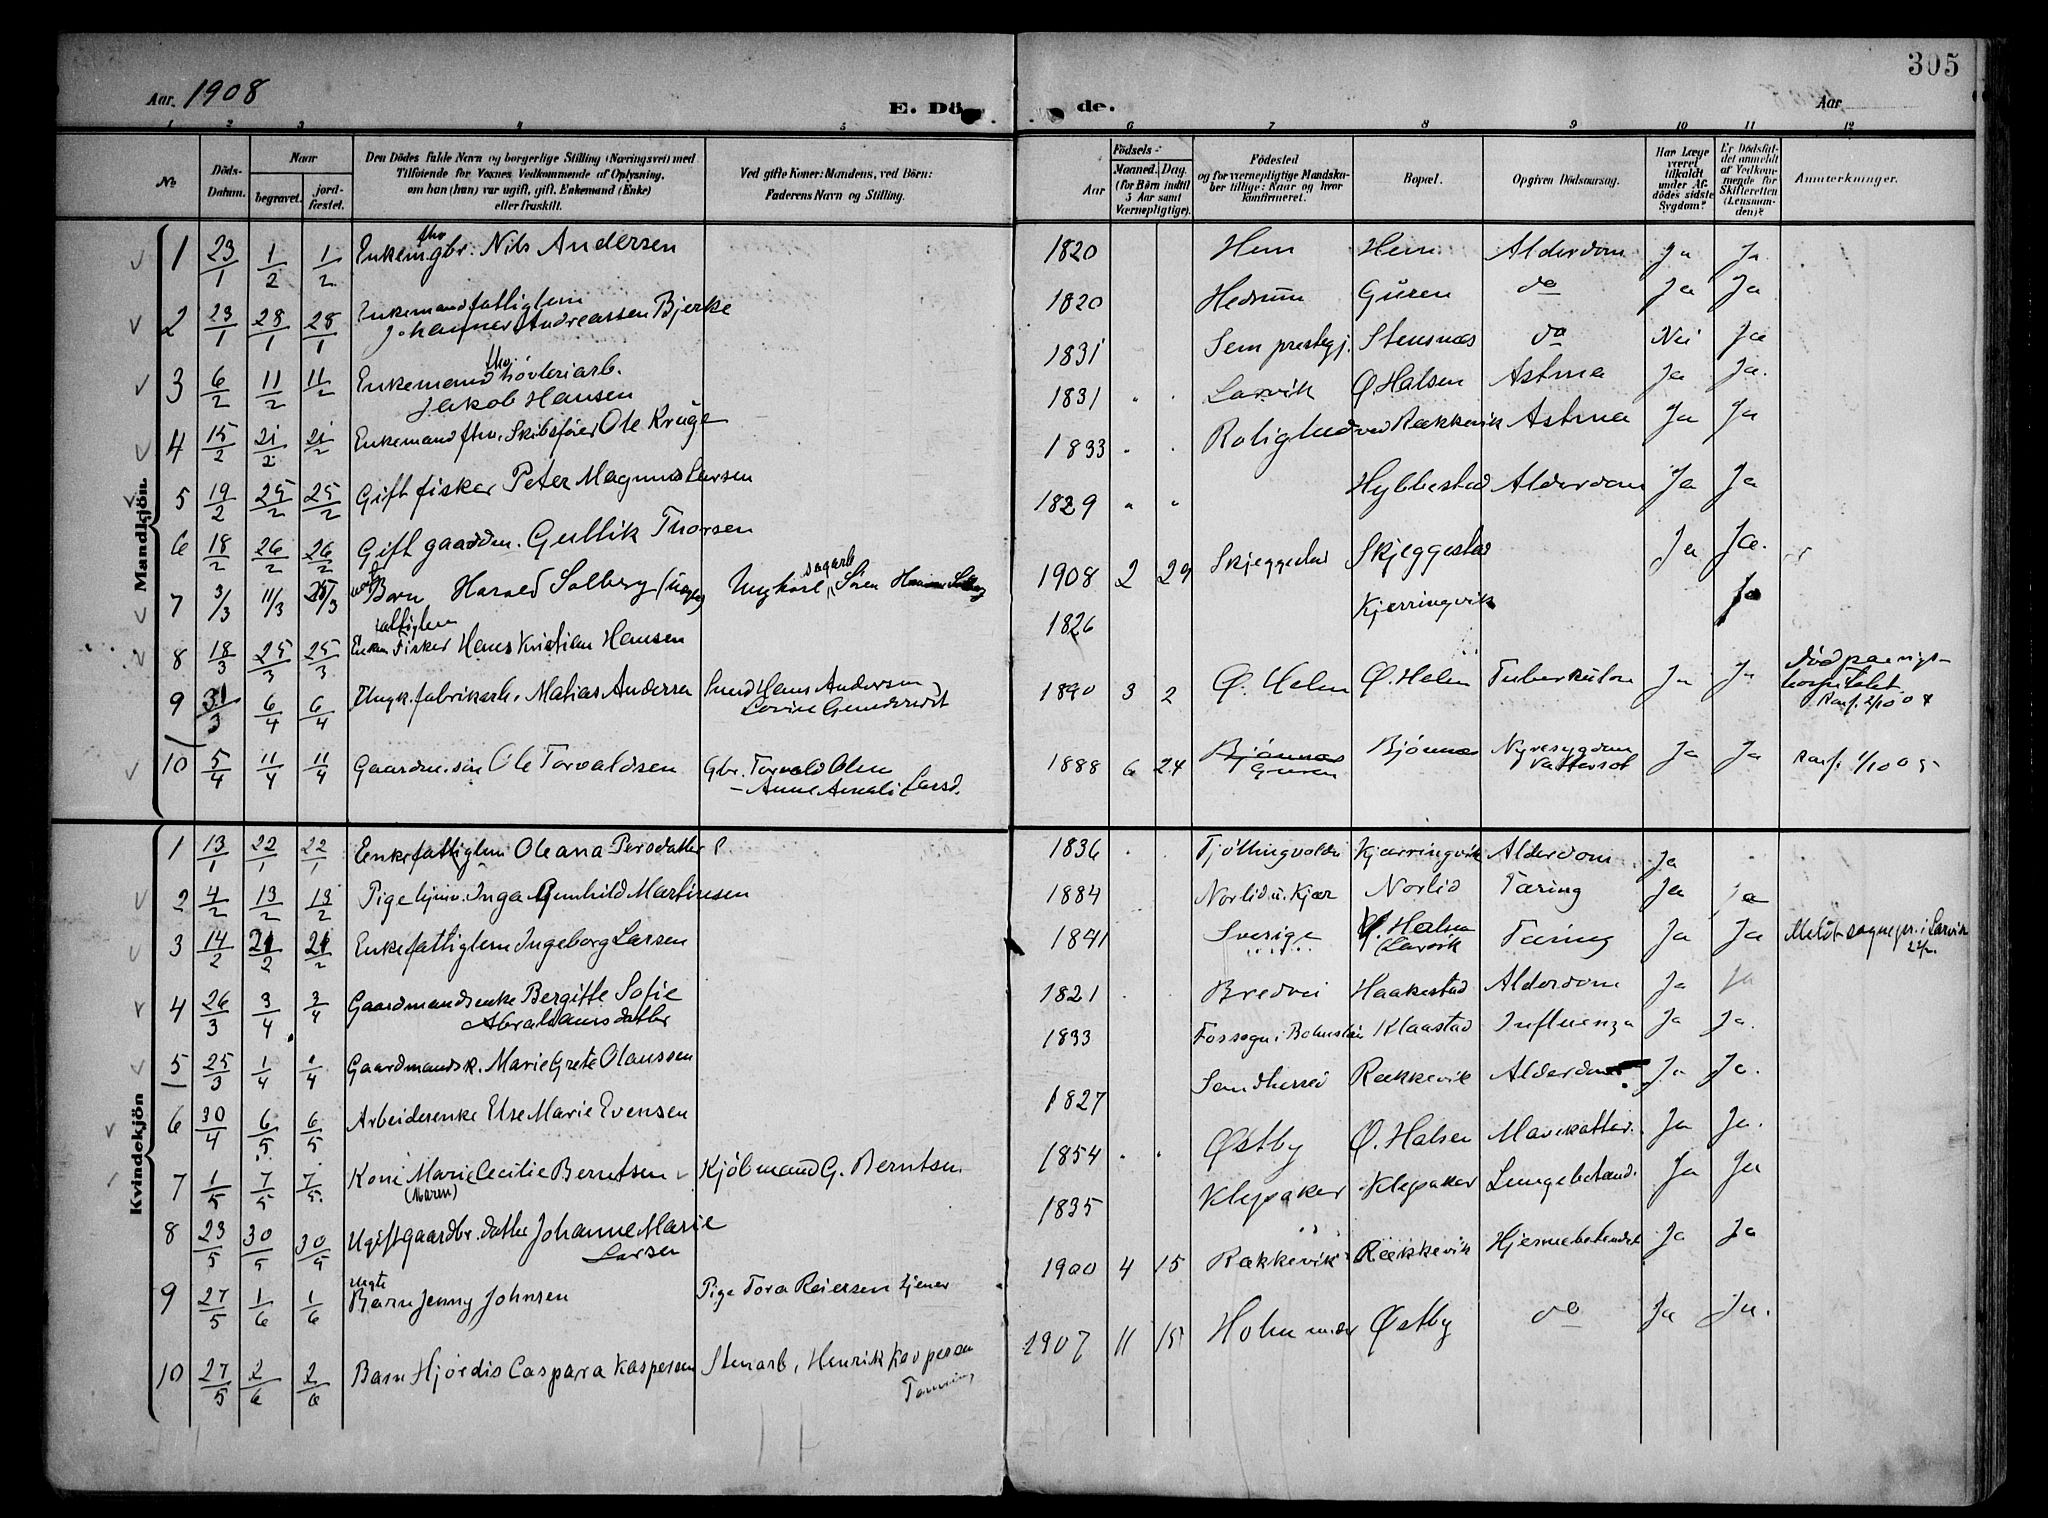 305
Aar. 1908
E. Dö de.
Aar
1 2 3 4 5 6 7 8 9 10 11 12
No
Döds-Datum.
Naar
begravet.
jord-fæstet.
Den Dödes fulde Navn og borgerlige Stilling (Næringsvei) med
Tilföiende for Voxnes Vedkommende af Oplysning,
om han (hun) var ugift, gift, Enkemand (Enke)
eller fraskilt.
Ved gifte Koner: Mandens, ved Börn:
Faderens Navn og Stilling.
Födsels-
Aar
Maaned. Dag.
(for Börn indtil
5 Aar samt
Værnepligtige).
Födested
og for værnepligtige Mandska-
ber tillige: Naar og hvor
konfirmeret.
Bopæl.
Opgiven Dödsaarsag.
Har Læge
været
tilkaldt
under Af-
dödes sidste
Sygdom?
Er Dödsfal-
det anmeldt
af Vedkom-
mende for
Skifteretten
(Lensman-
den)?
Anmærkninger.
Mandkjön.
1 23/1 1/2 1/2 Enkem. fhv. gbr. Nils Andersen 1820 Hem Hem Alderdom Ja Ja
2 23/1 28/1 28/1 Enkemand fattiglem
Johannes Andreassen Bjerke 1820 Hedrum Guren do Ja Ja
3 6/2 11/2 11/2 Enkemand fhv. høvleriarb.
Jakob Hansen 1831 Sem prestegj. Stensnæs do Nei Ja
4 15/2 21/2 21/2 Enkemand fhv. Skibsfører Ole Kruge 1831 Larvik Ø. Halsen Astma Ja Ja.
5 19/2 25/2 25/2 Gift fisker Peter Magnus Larsen 1833 Rolighed ved Rækkevik Astma Ja Ja
6 18/2 26/2 26/2 Gift gaardm. Gullik Thorsen 1829 Hybbestad Alderdom Ja Ja
7 3/3 11/3 /3 Barn Harald Solberg Ungkarl, sagarb Søren Solberg 1908 2 29 Skjeggestad Skjeggestad Ja Ja.
8 18/3 25/3 25/3 fattiglem
Enkem Fisker Hans Kristian Hansen 1826 Kjerringvik Ja
9 31/3 6/4 6/4 Ungk. fabrikarb. Matias Andersen Hans Andersen
1890 3 2 Ø. Halsen Ø. Halsen Tuberkulose Ja Ja
10 5/4 11/4 11/4 Gaardm. søn Ole Torvaldsen Gbr. Torvald Olsen
- Anne Amalie Larsd. 1888 6 24 Bjønnes
Guren Bjønnes Nyresygdom
Vattersot Ja Ja
Kvindekjön
1 13/1 22/1 22/1 Enke fattiglem Oleana Persdatter 1836 Tjøllingvolden Kjærringvik Alderdom Ja
2 4/2 13/2 13/2 Pige hjmv. Inga Gunhild Martinsen 1884 Norlid u. Kjær Norlid Tæring Ja Ja
3 14/2 21/2 21/2 Enke fattiglem Ingeborg Larsen 1841 Sverige Ø. Halsen
Larvik Tæring Ja Ja Meldt sognepr. i Larvik
22/2.
4 26/3 3/4 3/4 Gaardmandsenke Bergitte Sofie
Abrahamsdatter 1821 Bredvei Haakestad Alderdom Ja Ja
5 25/3 1/4 1/4 Gaardmandsk. Marie Grete Olaussen 1833 Fossogn i Bohuslän Klaastad Influenza Ja Ja.
6 30/4 6/5 6/5 Arbeiderenke Else Marie Evensen 1827 Sandherred Rækkevik Alderdom Ja Ja.
7 1/5 7/5 7/5 Kone Marie Cecilie Berntsen
(Maren) Kjøbmand G. Berntsen 1854 Østby Ø. Halsen Mavekattar. Ja Ja.
8 23/5 30/5 30/5 Ugift gaardbr. datter Johanne Marie
Larsen 1835 Klepaker Klepaker Lungebetænd. Ja Ja
9 27/5 1/6 1/6 uægte
Barn Jenny Johnsen Pige Tora Reiersen tjener 1900 4 15 Rækkevik Rækkevik Hjernebetændel. Ja Ja
10 27/5 2/6 2/6 Barn Hjördis Caspara Kaspersen Stenarb. Henrik Kaspersen
1907 11 15 Holm Østby do Ja Ja.